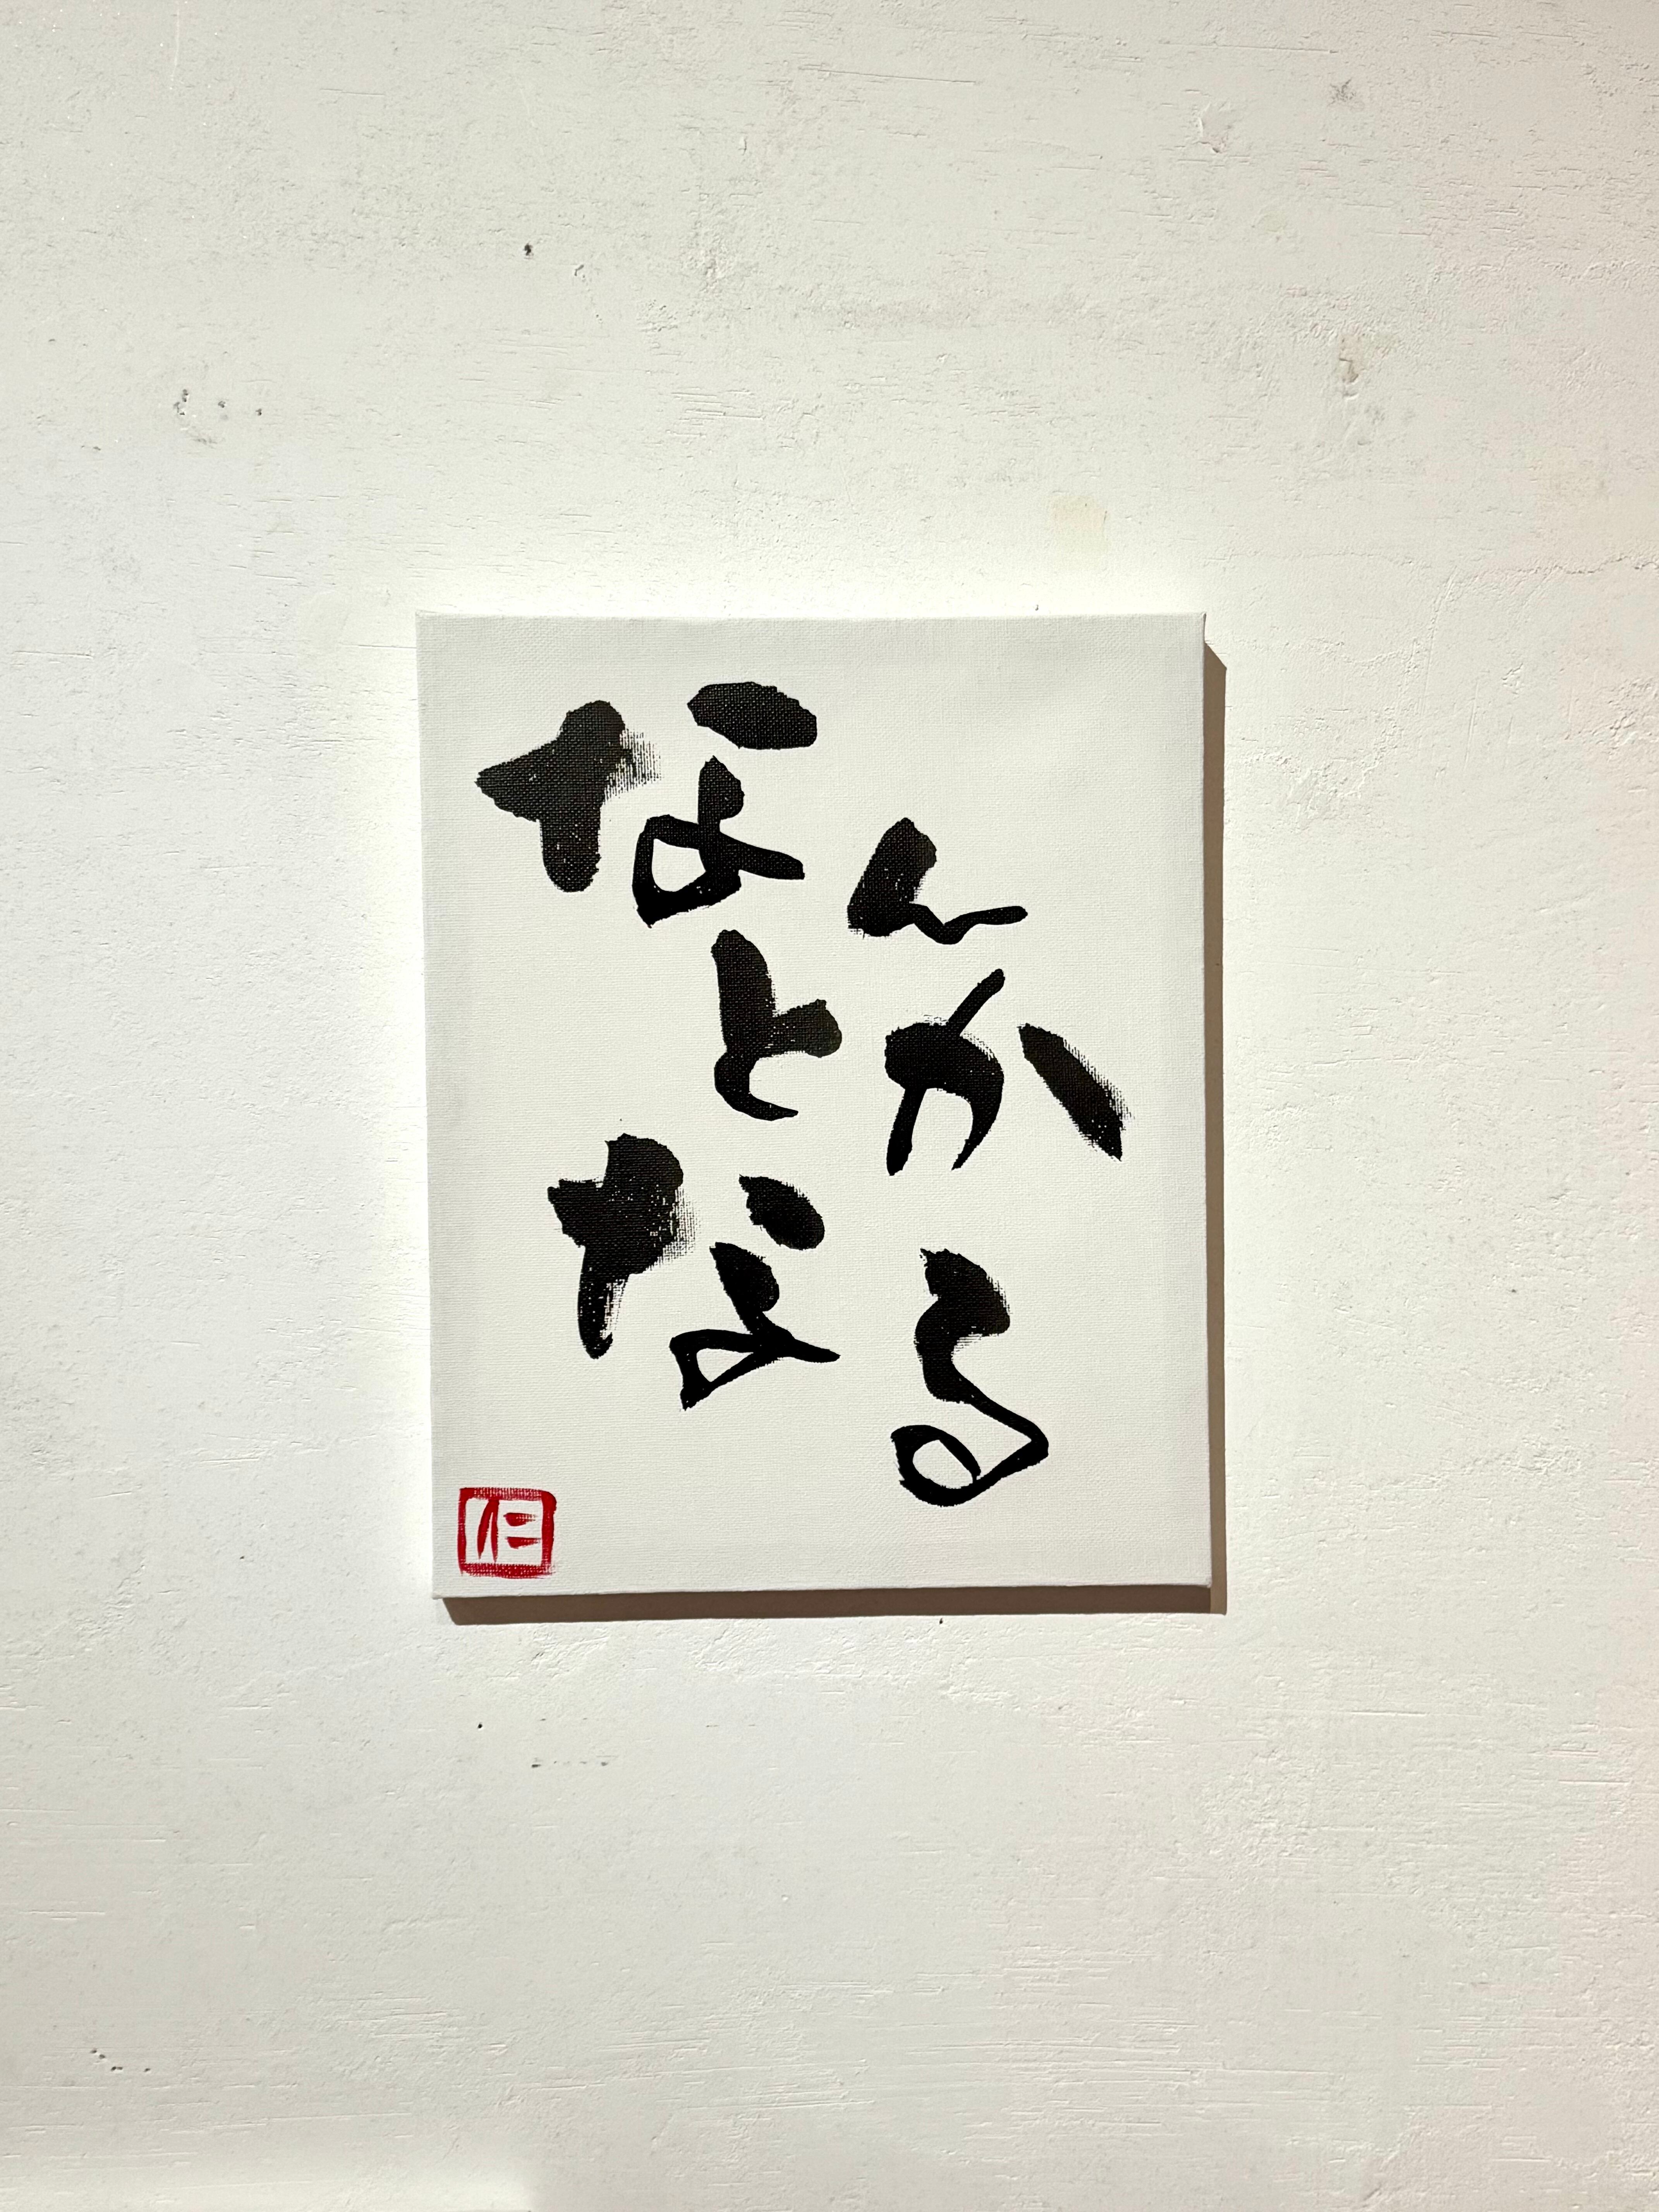 なん
とか
なる
仁